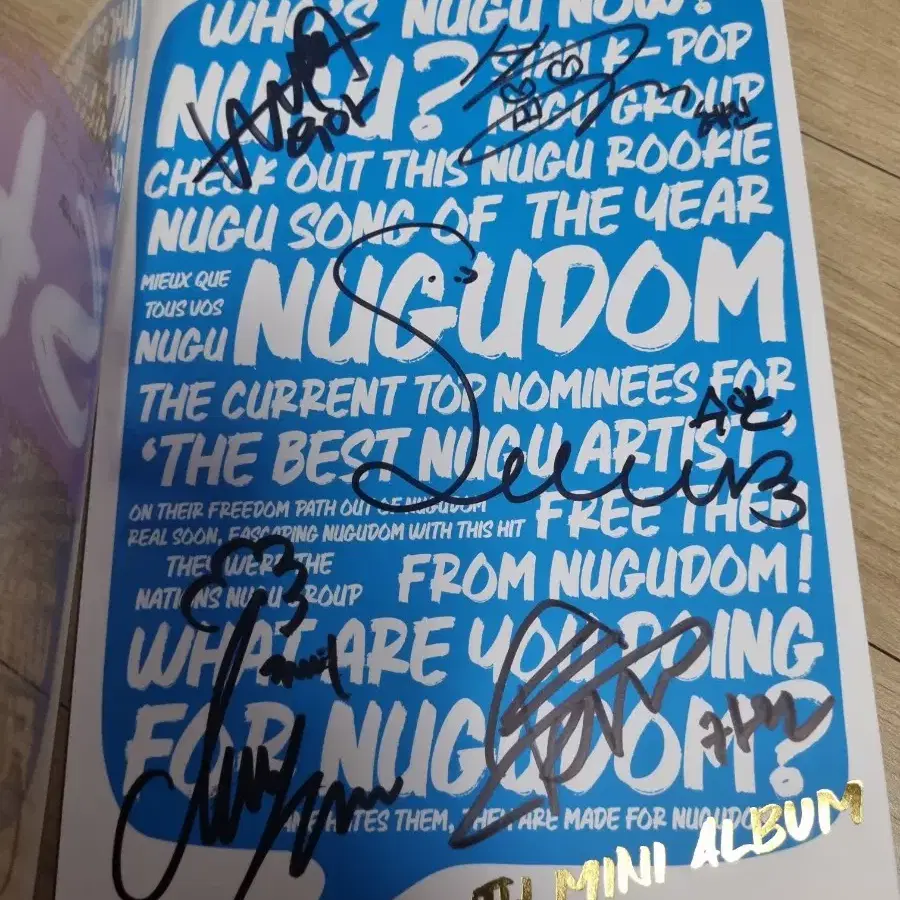 WHO'S NUGU NOW?
NUGU?
STAN K-POP
NUGU GROUP
CHECK OUT THIS NUGU ROOKIE
NUGU SONG OF THE YEAR
MIEUX QUE
TOUS VOS
NUGU
NUGUDOM
THE CURRENT TOP NOMINEES FOR
'THE BEST NUGU ARTIST'
ON THEIR FREEDOM PATH OUT OF NUGUDOM
REAL SOON, EASCAPING NUGUDOM WITH THIS HIT
FREE THEM
FROM NUGUDOM!
THEY WERE THE
NATIONS NUGU GROUP
WHAT ARE YOU DOING
FOR NUGUDOM?
HATES THEM, THEY ARE MADE FOR
MINI ALBUM